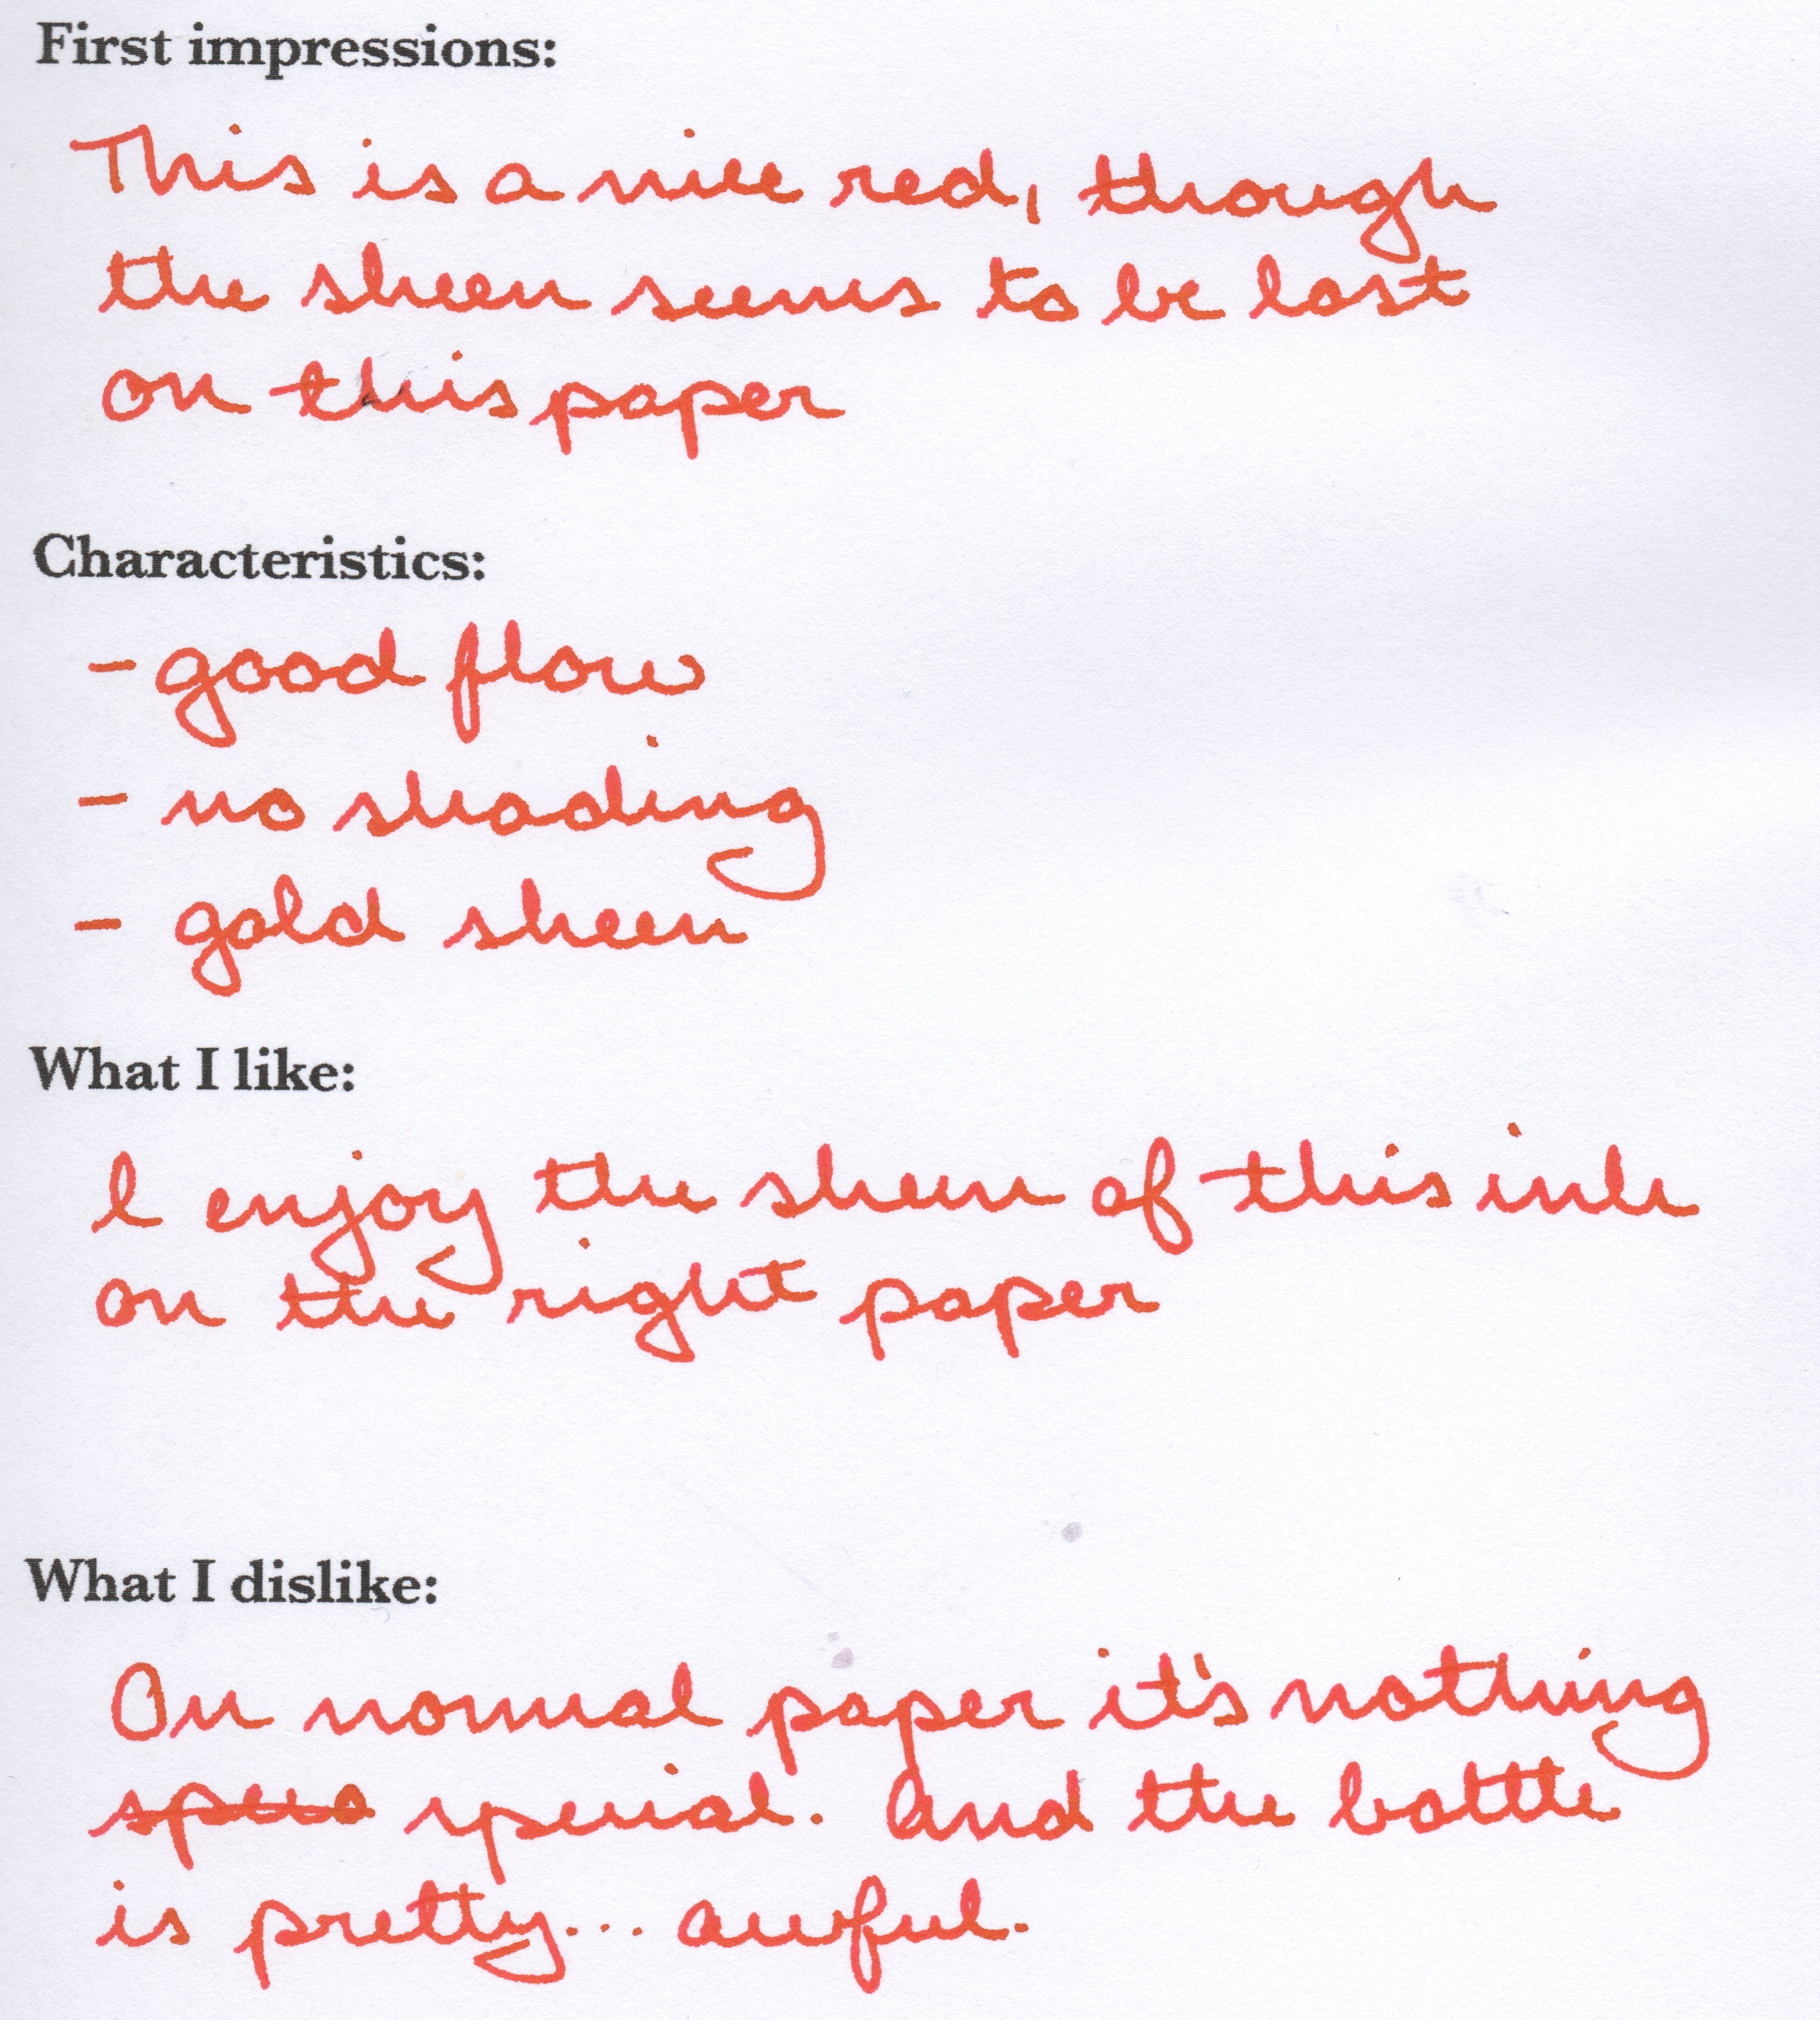 First impressions:
This is a nice red, though
the sheen seems to be lost
on this paper
Characteristics:
- good flow
- no shading
- gold sheen
What I like:
I enjoy the sheen of this ink
on the right paper
What I dislike:
On normal paper it's nothing
special. And the bottle
is pretty... awful.